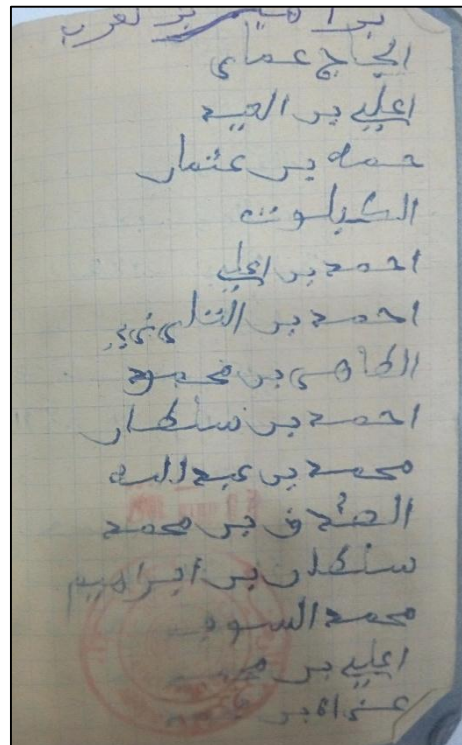 براهيم بن لعرب
الحاج عماي
اعلي بن العيد
حمه بن عثمان
الشبلوت
احمد بن اعلي
احمد بن التليلي
الطاهر بن محمود
احمد بن سلطان
محمد بن عبد الله
الصادق بن محمد
سلطان بن ابراهيم
محمد السو
اعلي بن
بن